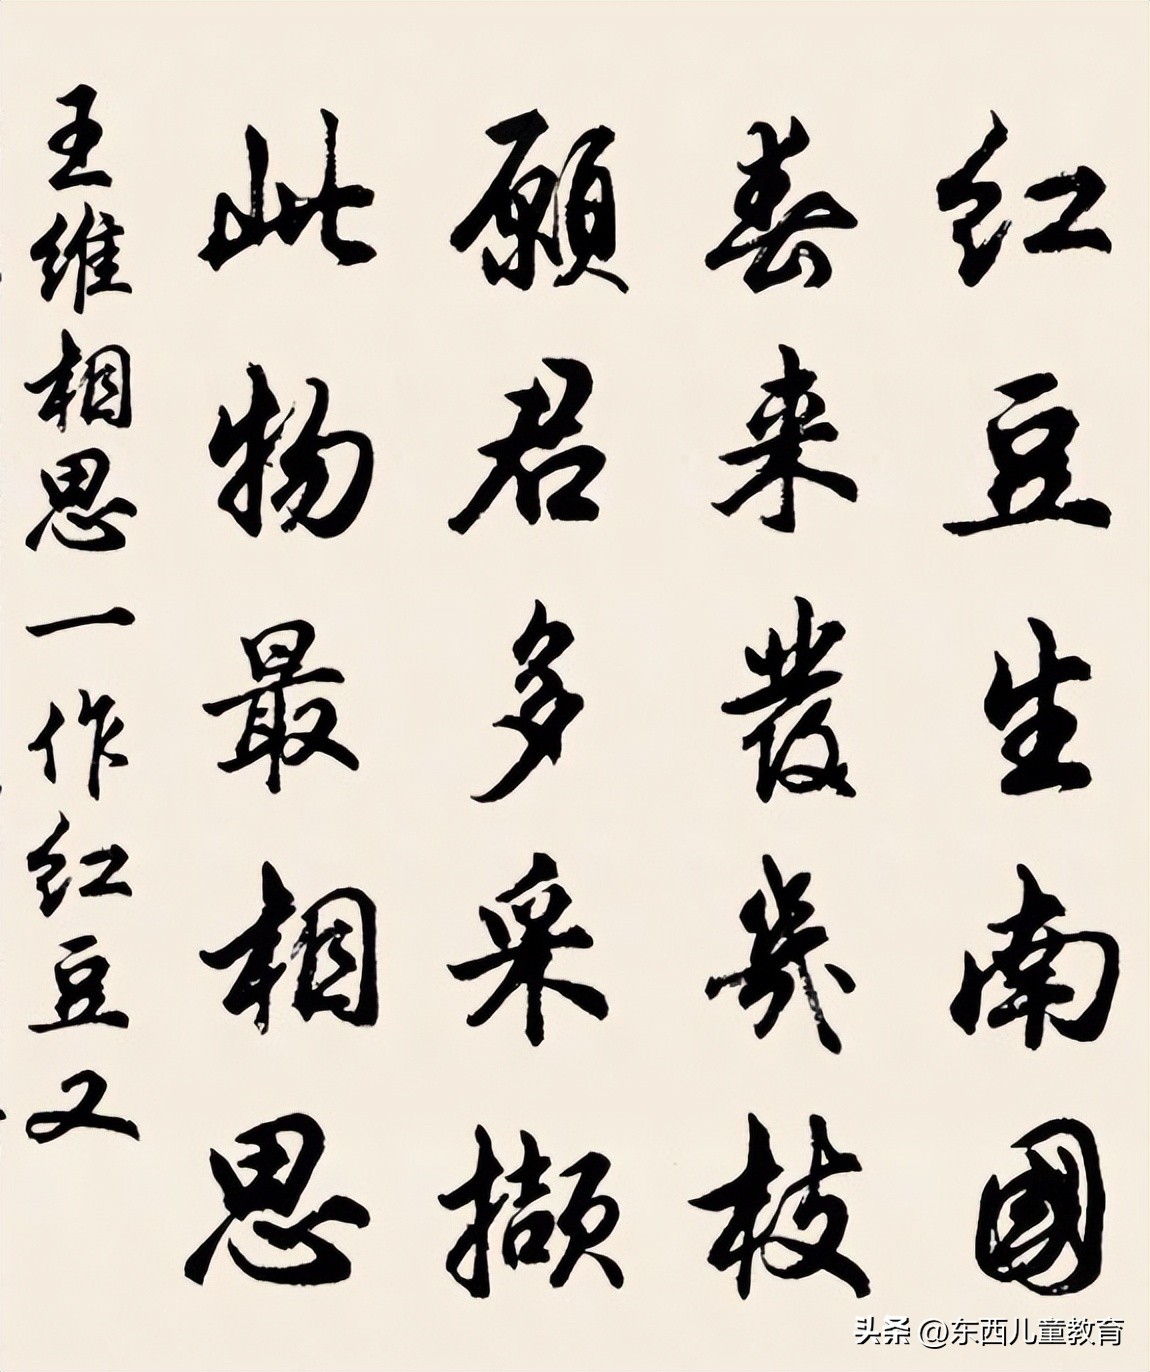 红豆生南國
春来發幾枝
願君多采擷
此物最相思
王维相思一作红豆又
头条 @东西儿童教育